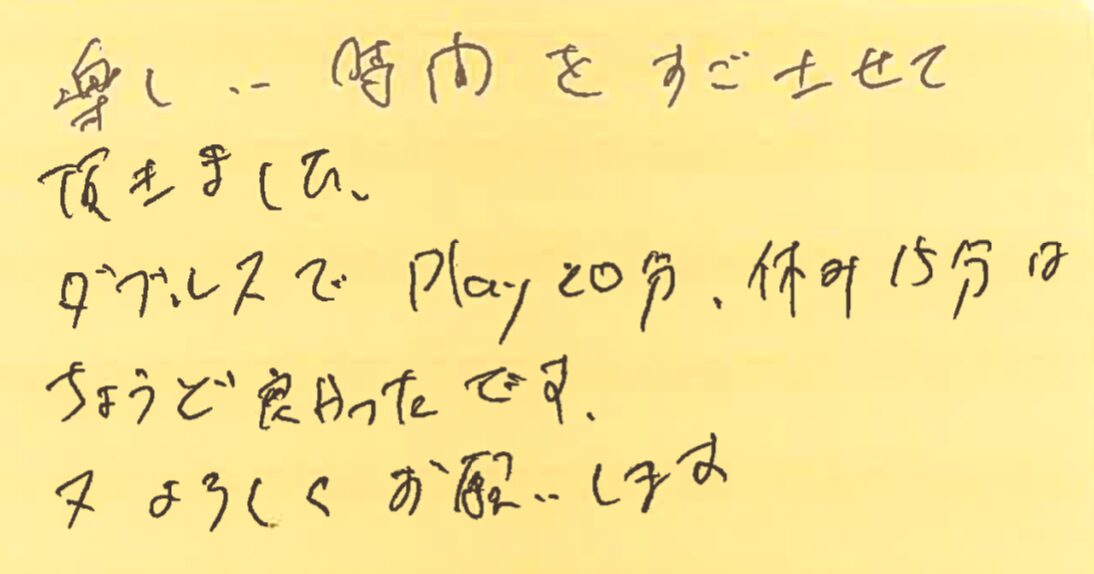 楽しい時間をすごさせて
頂きました。
ダブルスでPlay20分、休み15分は
ちょうど良かったです。
又よろしくお願いします